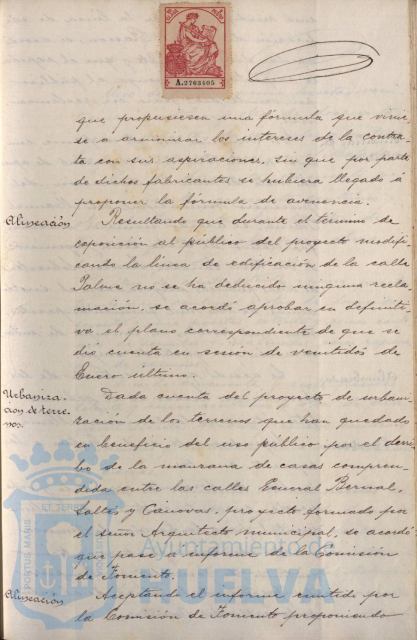 A.2763405
que propusiesen una fórmula que vinie
se a armonizar los intereses de la contra
ta con sus aspiraciones, sin que por parte
de dichos fabricantes se hubiera llegado á
proponer la fórmula de avenencia.
Alineación
Resultando que durante el término de
exposición al público del proyecto modifi
cando la línea de edificación de la calle
Palos no se ha deducido ninguna recla
mación, se acordó aprobar en definiti
va el plano correspondiente de que se
dió cuenta en sesión de veintidos de
Enero último.
Urbaniza-
ción de terre-
nos.
Dada cuenta del proyecto de urbani
zación de los terrenos que han quedado
en beneficio del uso público, por el derri
bo de la manzana de casas compren
dida entre las calles General Bernal,
Saltés y Cánovas, proyecto formado por
el señor Arquitecto municipal, se acordó
que pase a informe de la Comisión
de Fomento.
Alineación
Aceptando el informe emitido por
la Comisión de Fomento proponiendo
PORTUS MARIS ET TERRE
Ayuntamiento de
HUELVA